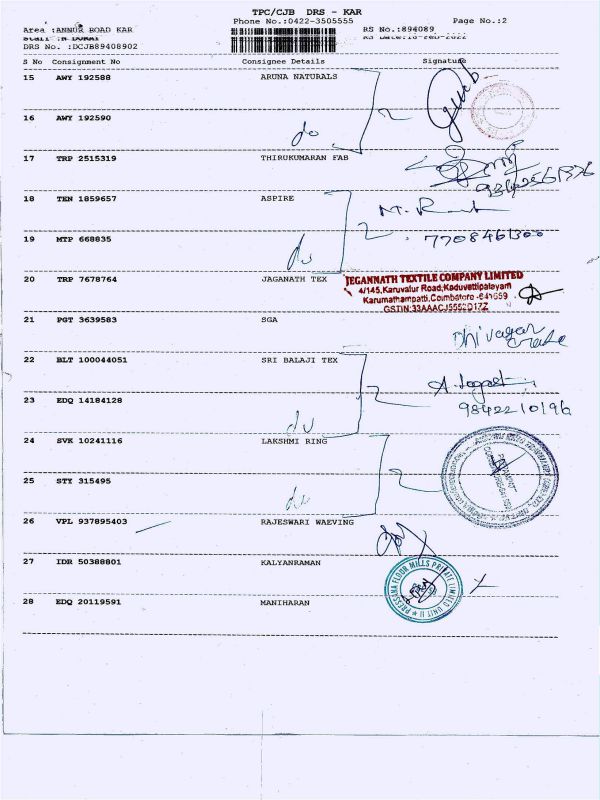 TPC/CJB DRS - KAR
Phone No.:0422-3505555 Page No.:2
Area :ANNUR ROAD KAR RS No.:894089
DRS No. :DCJB89408902
S No Consignment No Consignee Details Signature
15 AWY 192588 ARUNA NATURALS
16 AWY 192590 do
17 TRP 2515319 THIRUKUMARAN FAB
18 TEN 1859657 ASPIRE
19 MTP 668835 do 7708461300
20 TRP 7678764 JAGANATH TEX
JEGANNATH TEXTILE COMPANY LIMITED
4/145,Karuvalur Road,Kaduvettipalayam
Karumathampatti,Coimbatore -641659
21 PGT 3639583 SGA
22 BLT 100044051 SRI BALAJI TEX
23 EDQ 14184128 do 9842210196
24 SVK 10241116 LAKSHMI RING
25 STY 315495 do
26 VPL 937895403 RAJESWARI WAEVING
27 IDR 50388801 KALYANRAMAN
PRESSANA FLOOR MILLS PRIVATE LIMITED UNIT II
28 EDQ 20119591 MANIHARAN